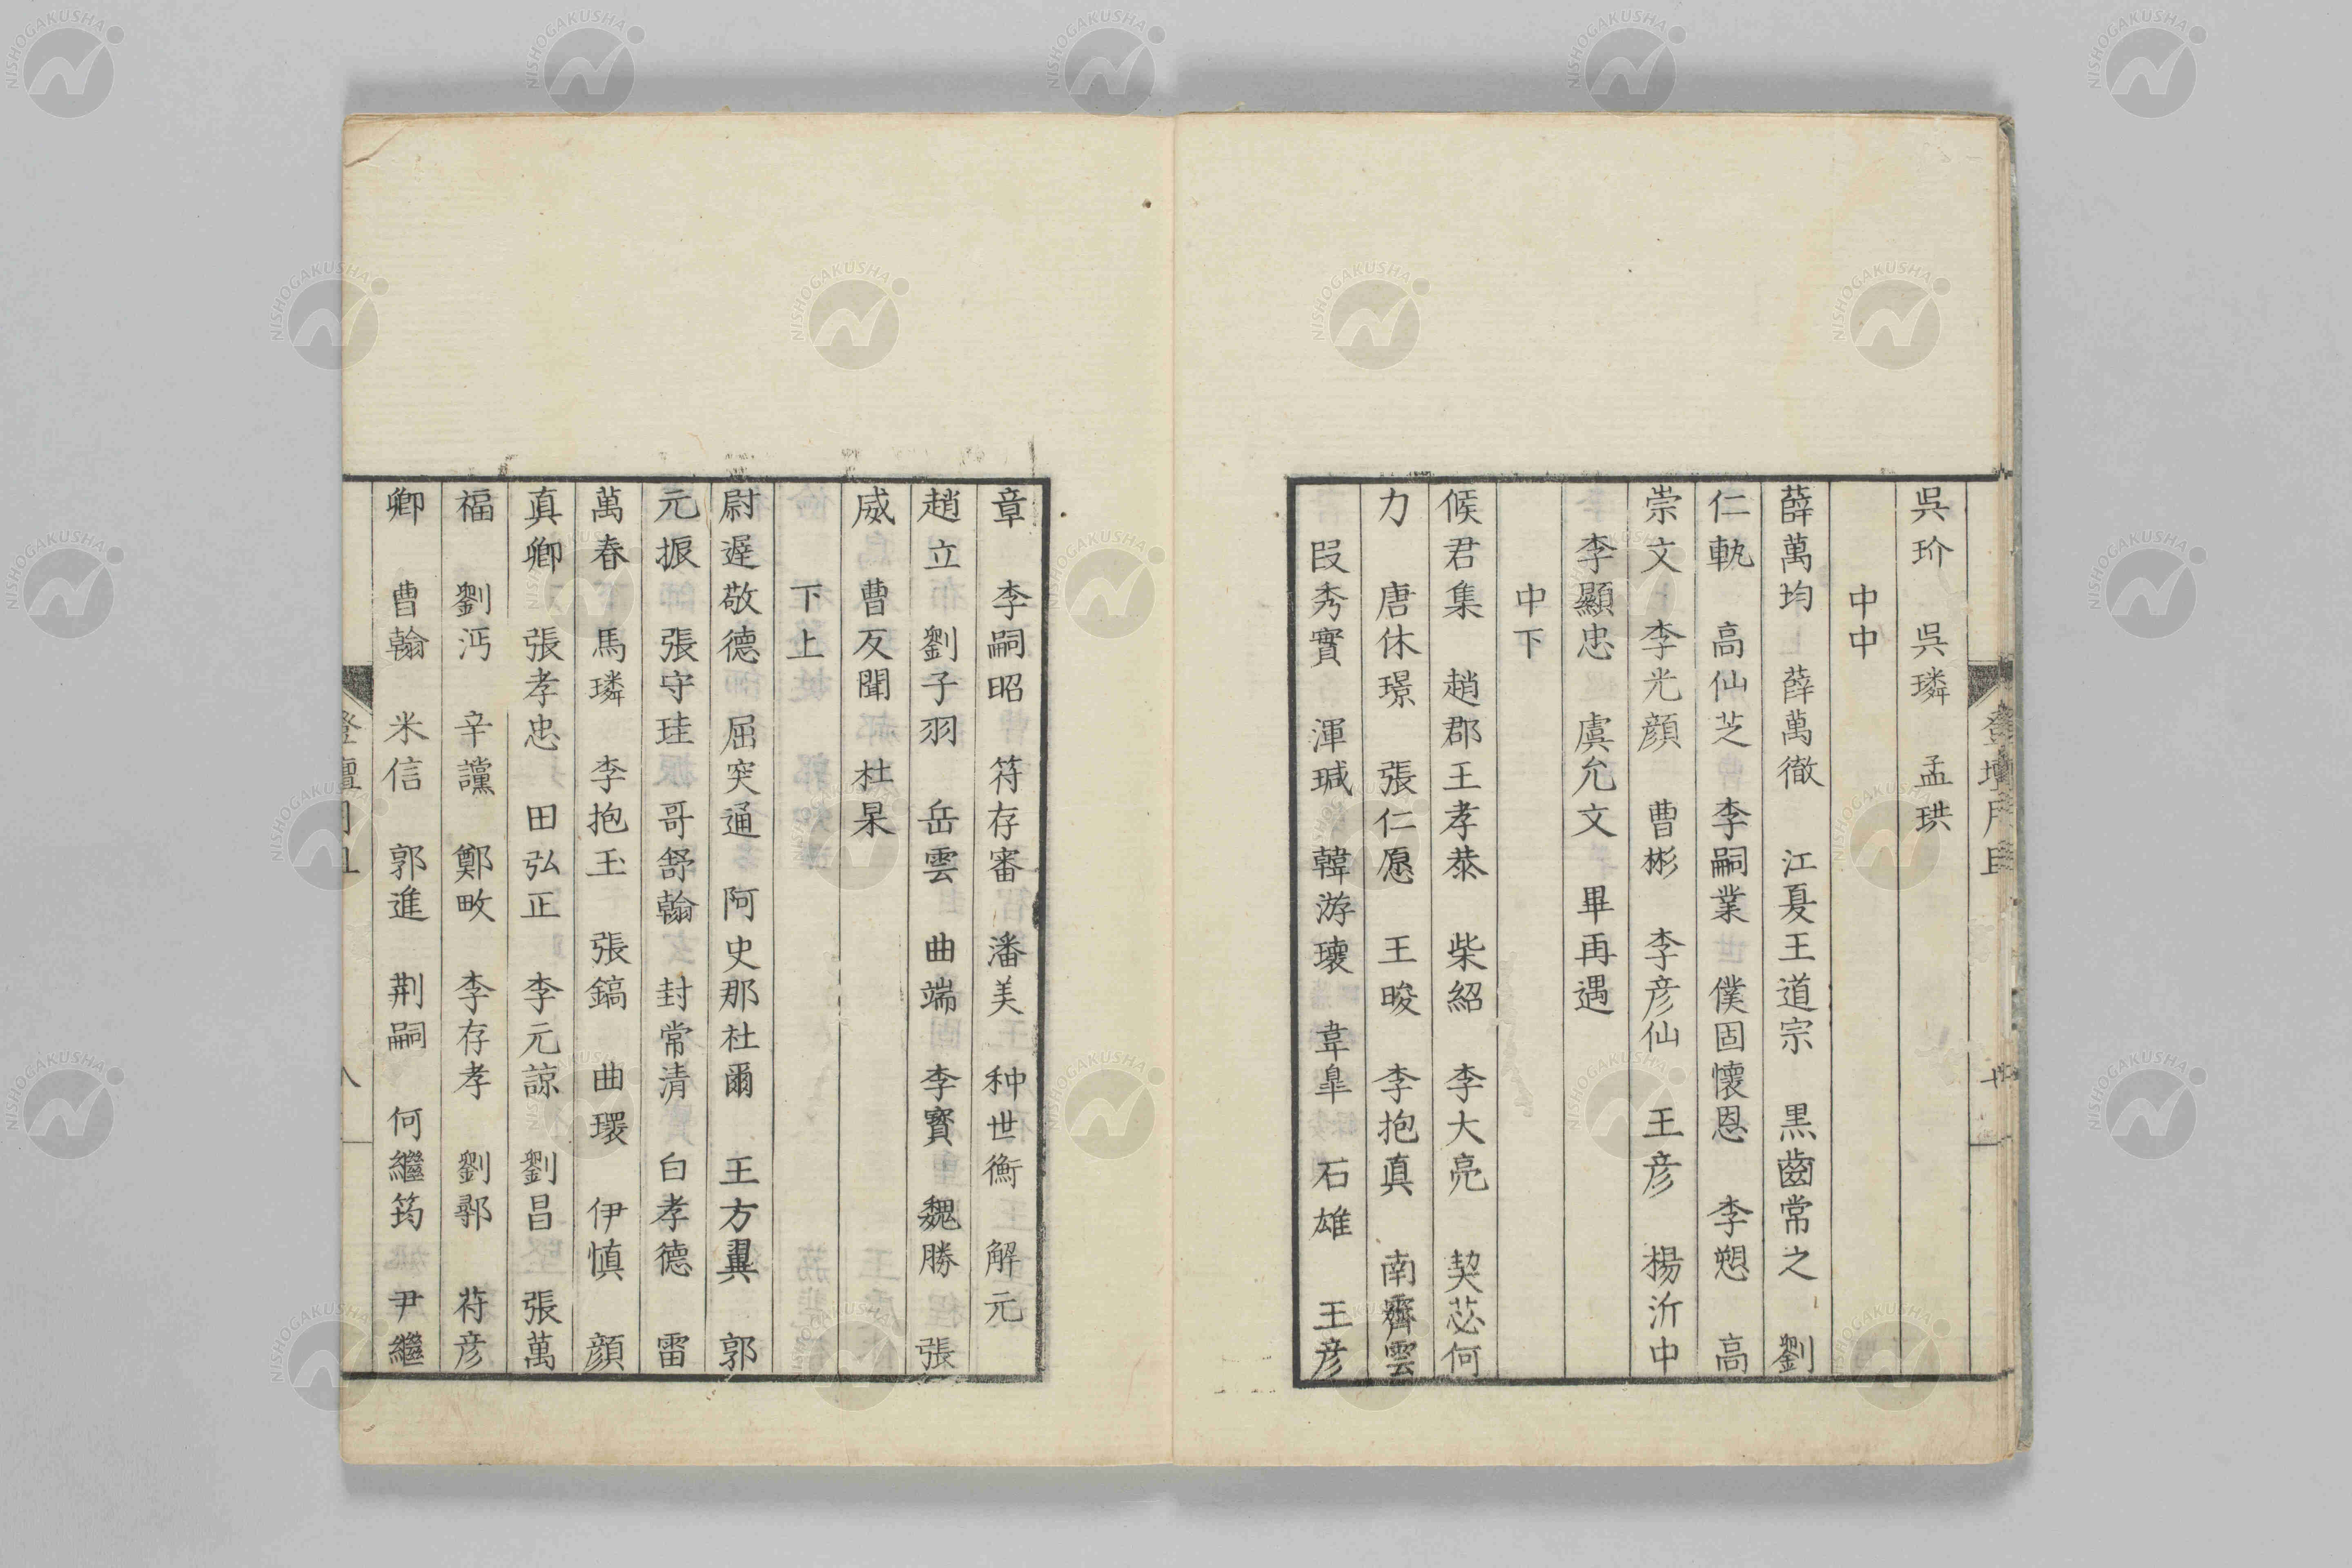 吳玠　吳璘　孟珙
中中
薛萬均　薛萬徹　江夏王道宗　黒齒常之　劉
仁軌　高仙芝　李嗣業　僕固懷恩　李愬　高
崇文　李光顔　曹彬　李彦仙　王彦　楊沂中
李顯忠　虞允文　畢再遇
中下
候君集　趙郡王孝恭　柴紹　李大亮　契苾何
力　唐休璟　張仁愿　王晙　李抱真　南霽雲
段秀實　渾瑊　韓游瓌　韋皐　石雄　王彦
章　李嗣昭　符存審　潘美　种世衡　解元
趙立　劉子羽　岳雲　曲端　李寳　魏勝　張
威　曹友聞　杜杲
下上
尉遲敬德　屈突通　阿史那杜爾　王方翼　郭
元振　張守珪　哥舒翰　封常清　白孝德　雷
萬春　馬璘　李抱玉　張鎬　曲環　伊慎　顔
真卿　張孝忠　田弘正　李元諒　劉昌　張萬
福　劉沔　辛讜　鄭畋　李存孝　劉鄩　符彦
卿　曹翰　米信　郭進　荆嗣　何繼筠　尹繼
NISHOGAKUSHA